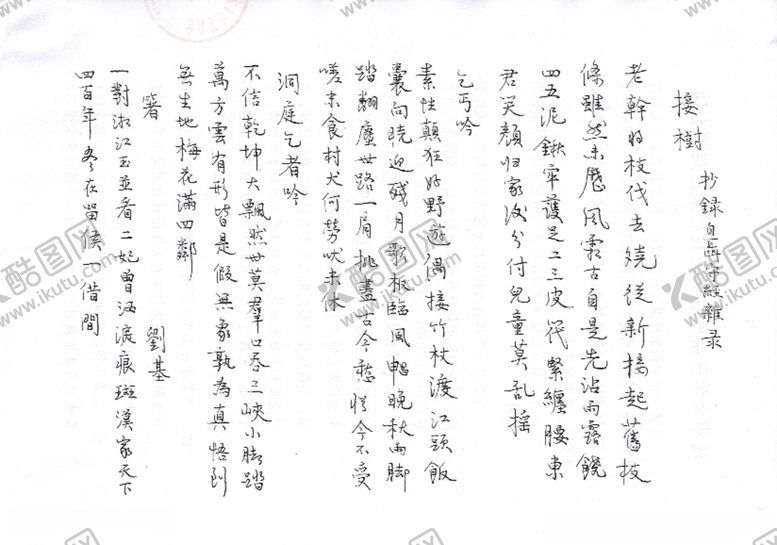 抄錄自守經雜录
接樹
老幹的枝伐去燒從新接起舊枝
條雖然未歷風霜古自是先沾雨露饒
四五泥鍬牢護足二三皮篾緊纏腰東
君笑顏归家後分付兒童莫乱摇
乞丐吟
素性顛狂好野遊偶接竹杖渡江頭飯
囊向晓迎殘月歌板臨風唱晚秋兩脚
踏翻塵世路一肩挑盡古今愁惜今不受
嗟來食村犬何勞吠未休
洞庭乞者吟
不信乾坤大飄然世莫羣口吞三峽小脚踏
萬方雲有形皆是假無象孰為真悟到
無生地梅花滿四鄰
箸 劉基
一對湘江玉並看二妃曾洒淚痕斑漢家天下
四百年尽在留侯一借間
酷图网
www.ikutu.com